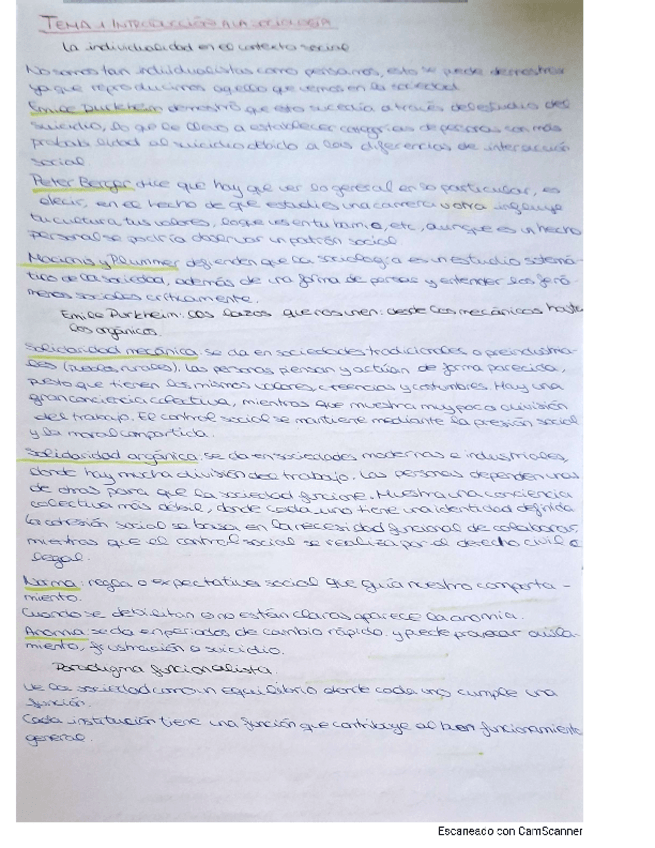 TEMA 1 INTRODUCCIÓN A LA SOCIOLOGÍA
La individualidad en el contexto social
No somos tan individualistas como pensamos, esto se puede demostrar
ya que reproducimos aquello que vemos en la sociedad.
Emile Durkheim demostró que esto sucedía a través del estudio del
suicidio, lo que le llevo a establecer categorías de personas con más
probabilidad al suicidio debido a las diferencias de interacción
social.
Peter Berger dice que hay que ver lo general en lo particular, es
decir, en el hecho de que estudies una carrera u otra influye
tu cultura, tus valores, lo que ves en tu , etc, aunque es un hecho
personal se podría observar un patrón social.
Macionis y Plummer defienden que la sociología es un estudio sistemá-
tico de la sociedad, además de una forma de pensar y entender los fenó-
menos sociales críticamente.
Emile Durkheim: los lazos que nos unen: desde los mecánicos hasta
los orgánicos.
Solidaridad mecánica: se da en sociedades tradicionales o preindustria-
les (pueblos, rurales). Las personas piensan y actúan de forma parecida,
puesto que tienen los mismos valores, creencias y costumbres. Hay una
gran conciencia colectiva, mientras que muestra muy poca división
del trabajo. El control social se mantiene mediante la presión social
y la moral compartida.
Solidaridad orgánica: se da en sociedades modernas e industriales,
donde hay mucha división del trabajo. Las personas dependen unas
de otras para que la sociedad funcione. Muestra una conciencia
colectiva más débil, donde cada uno tiene una identidad definida.
La cohesión social se basa en la necesidad funcional de colaborar,
mientras que el control social se realiza por el derecho civil o
legal.
Norma: regla o expectativa social que guía nuestro comporta-
miento.
Cuando se debilitan o no están claras aparece la anomia.
Anomia: se da en periodos de cambio rápido y puede provocar aisla-
miento, frustración o suicidio.
Paradigma funcionalista.
Ve la sociedad como un equilibrio donde cada uno cumple una
función.
Cada institución tiene una función que contribuye al buen funcionamiento
general.
Escaneado con CamScanner